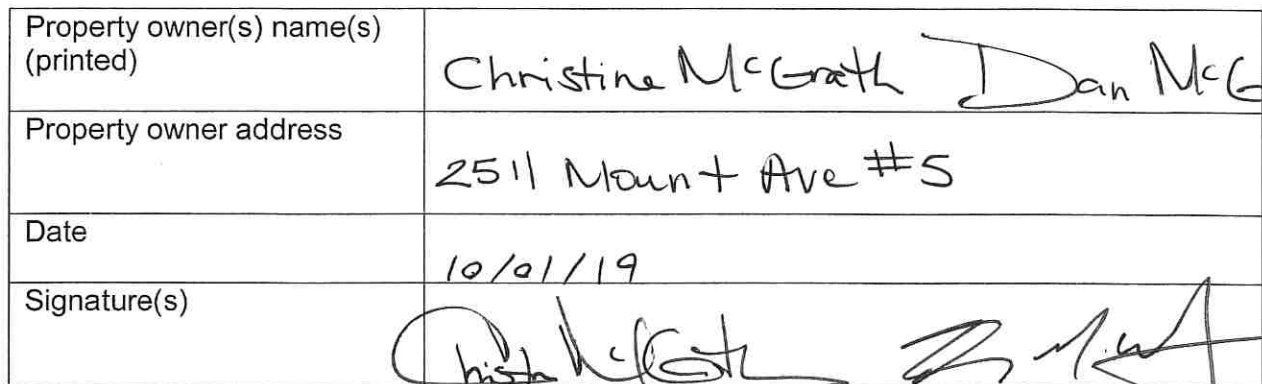 Property owner(s) name(s)
(printed)
Christine McGrath Dan McG
Property owner address
2511 Mount Ave #5
Date
10/01/19
Signature(s)
Christin McGrath